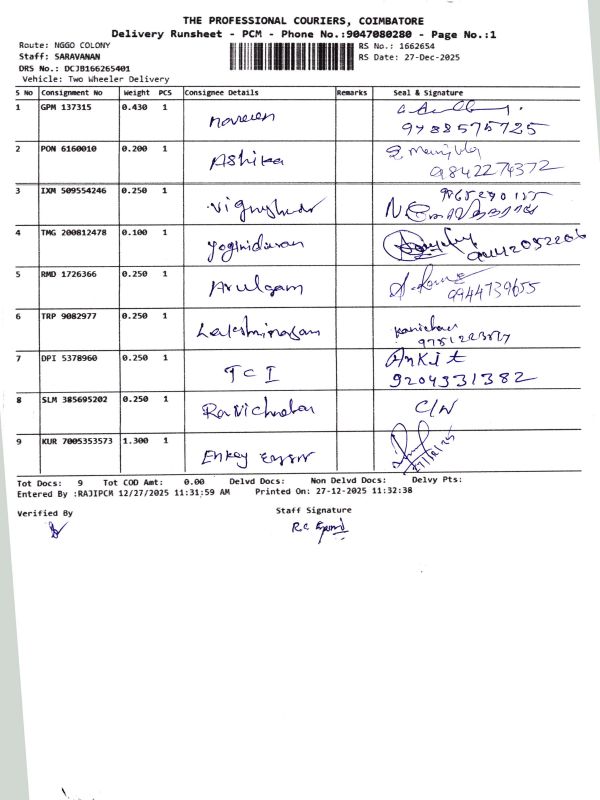 THE PROFESSIONAL COURIERS, COIMBATORE
Delivery Runsheet - PCM - Phone No.:9047080280 - Page No.:1
Route: NGGO COLONY
Staff: SARAVANAN
DRS No.: DCJB166265401
Vehicle: Two Wheeler Delivery
RS No.: 1662654
RS Date: 27-Dec-2025
S No Consignment No Weight PCS Consignee Details Remarks Seal & Signature
1 GPM 137315 0.430 1 Naveen
9788575725
2 PON 6160010 0.200 1 Ashika
9842274372
3 IXM 509554246 0.250 1
4 TMG 200812478 0.100 1
5 RMD 1726366 0.250 1 Arulgam
9944739655
6 TRP 9082977 0.250 1
7 DPI 5378960 0.250 1 TCI Ankit
9204331382
8 SLM 385695202 0.250 1 C/N
9 KUR 7005353573 1.300 1 Enkey
27/12/25
Tot Docs: 9 Tot COD Amt: 0.00 Delvd Docs: Non Delvd Docs: Delvy Pts:
Entered By :RAJIPCM 12/27/2025 11:31:59 AM Printed On: 27-12-2025 11:32:38
Verified By
Staff Signature